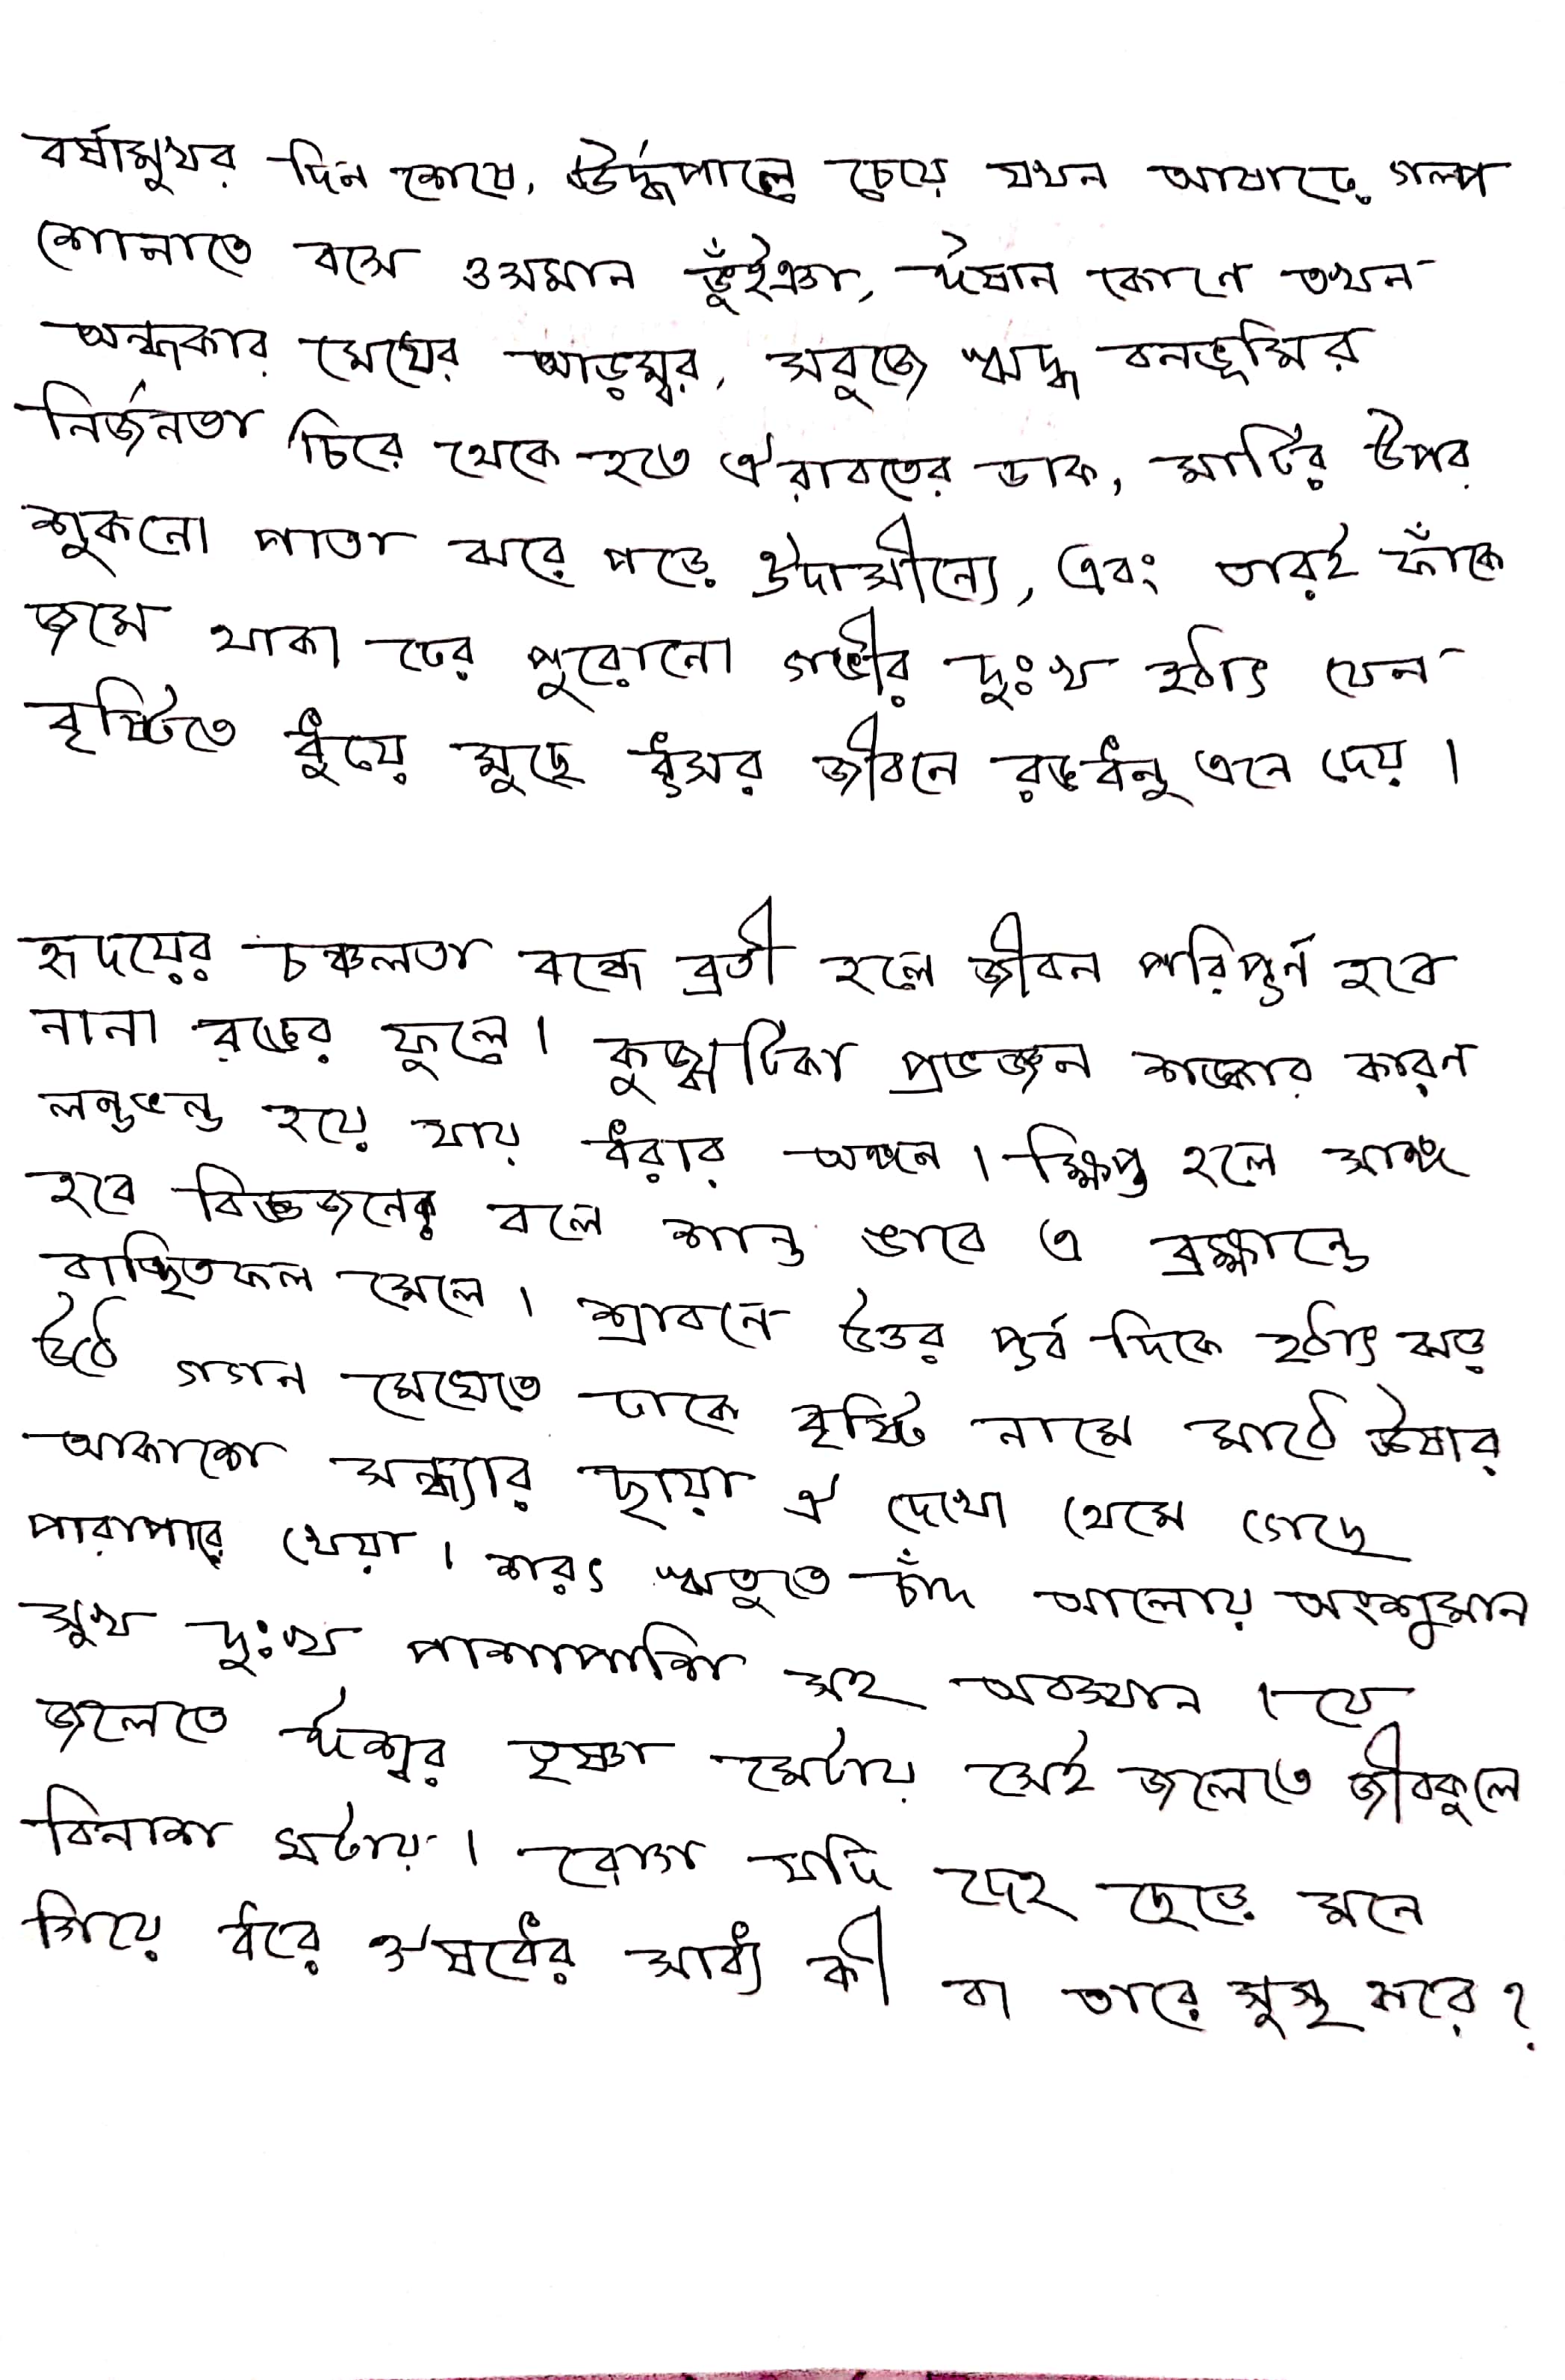 বর্ষামুখর দিন শেষে, ঊর্দ্ধপালে চেয়ে যখন আষাঢ়ে গল্প
শোনাতে বসে ওসমান ভুঁইঞা, ঈষান কোণে তখন
অন্ধকার মেঘের আড়ম্বর, সবুজে ঋদ্ধ বনভূমির
নির্জনতা চিরে থেকে হতে ঐরাবতের ডাক, মাটির উপর
শুকনো পাতা ঝরে পড়ে ঔদাসীন্যে, এবং তারই ফাঁকে
জমে থাকা ঢের পুরোনো গভীর দুঃখ হঠাৎ যেন
বৃষ্টিতে ধুয়ে মুছে ধূসর জীবনে রঙধনু এনে দেয়।
হৃদয়ের চঞ্চলতা বন্ধে ব্রতী হলে জীবন পরিপূর্ন হবে
নানা রঙের ফুলে। কুজ্ঝটিকা প্রভঞ্জন শঙ্কার কারণ
লন্ডভন্ড হয়ে যায় ধরার অঙ্গন। ক্ষিপ্ত হলে সাঙ্গ
হবে বিজ্ঞজনের বলে শান্ত ভাবে এ ব্রহ্মান্ডে
বাঞ্ছিতফল মেলে। শ্রাবনে উত্তর পূর্ব দিকে হঠাৎ ঝড়
উঠে গগন মেঘেতে ঢাকে বৃষ্টি নামে মাঠে ঊষার
আকাশে সন্ধ্যার ছায়া ঐ দেখো থেমে গেছে
পারাপারে খেয়া। শরৎ ঋতুতে চাঁদ আলোয় অংশুমান
সুখ দুঃখ পাশাপাশি সহ অবস্থান। যে
জলেতে ঈশ্বর তৃষ্ণা মেটায় সেই জলেতে জীবকুলে
বিনাশ ঘটায়। রোগ যদি দেহ ছেড়ে মনে
গিয়ে ধরে ঔষধের সাধ্য কী বা তারে সুস্থ করে?